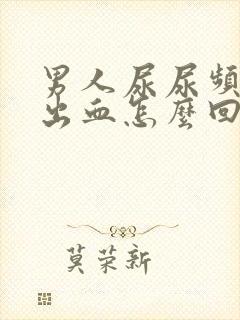 男人尿尿頻
出血怎麼回
莫荣新